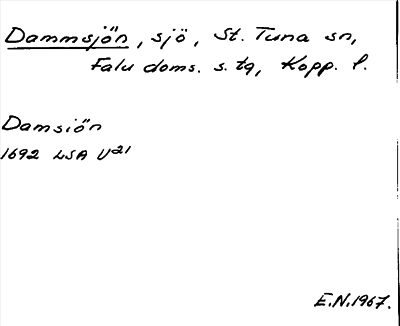 Dammsjön, sjö, St. Tuna sn,
Falu doms. s. tg, Kopp. l.
Damsiön
1692 LSA U21
E.N.1967.